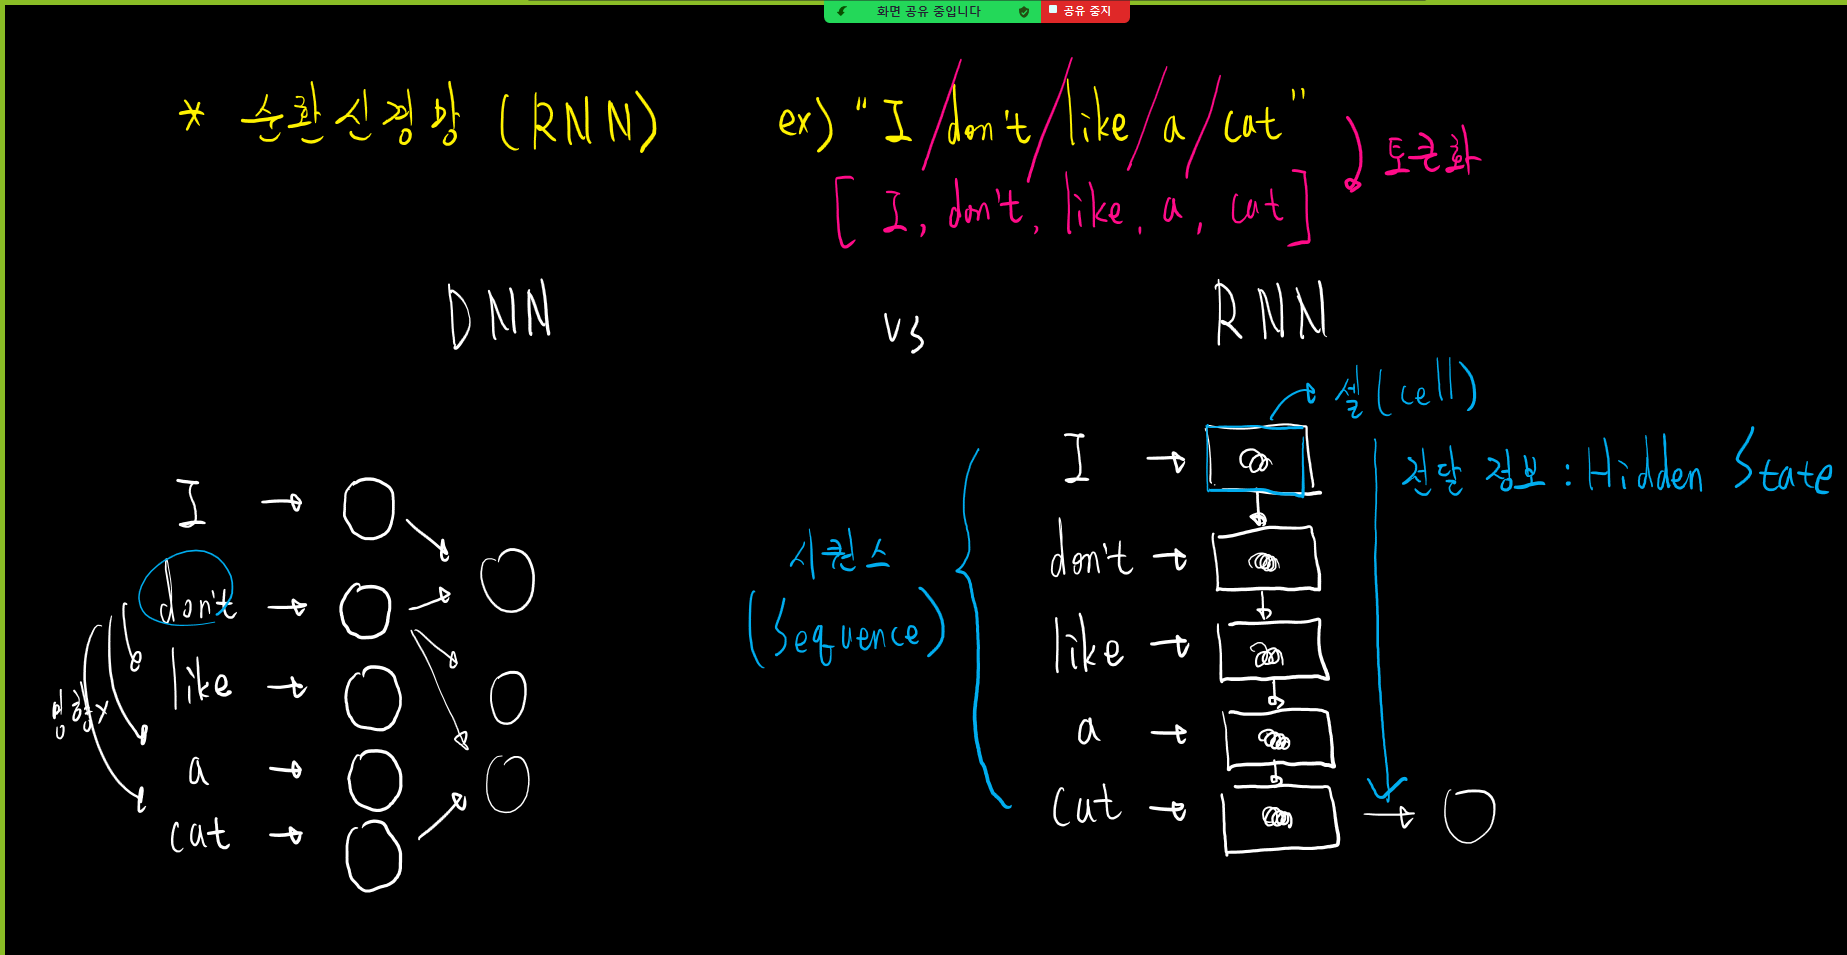 화면 공유 중입니다 공유 중지
* 순환신경망 (RNN)
ex) "I / don't / like / a / cat"
토큰화
[ I, don't, like, a, cat ]
DNN vs RNN
셀 (cell)
전달 정보 : Hidden State
I
don't
like
a
cat
영향X
시퀀스
(Sequence)
I
don't
like
a
cat